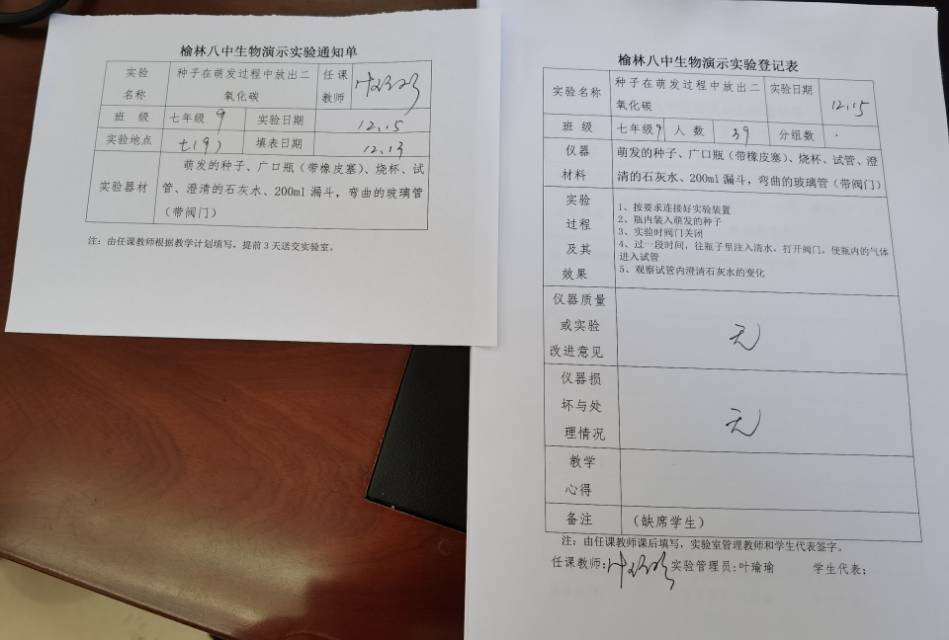 榆林八中生物演示实验通知单
实验名称 种子在萌发过程中放出二氧化碳 任课教师
班 级 七年级9 实验日期 12.15
实验地点 七(9) 填表日期 12.13
实验器材 萌发的种子、广口瓶（带橡皮塞）、烧杯、试
管、澄清的石灰水、200ml 漏斗，弯曲的玻璃管
（带阀门）
注：由任课教师根据教学计划填写，提前 3 天送交实验室。
榆林八中生物演示实验登记表
实验名称 种子在萌发过程中放出二氧化碳 实验日期 12.15
班 级 七年级9 人 数 39 分组数
仪器材料 萌发的种子、广口瓶（带橡皮塞）、烧杯、试管、澄
清的石灰水、200ml 漏斗，弯曲的玻璃管（带阀门）
实验过程及其效果
1、按要求连接好实验装置
2、瓶内装入萌发的种子
3、实验时阀门关闭
4、过一段时间，往瓶子里注入清水，打开阀门，使瓶内的气体
进入试管
5、观察试管内澄清石灰水的变化
仪器质量或实验改进意见 无
仪器损坏与处理情况 无
教学心得
备注 （缺席学生）
注：由任课教师课后填写，实验室管理教师和学生代表签字。
任课教师: 实验管理员:叶瑜瑜 学生代表: